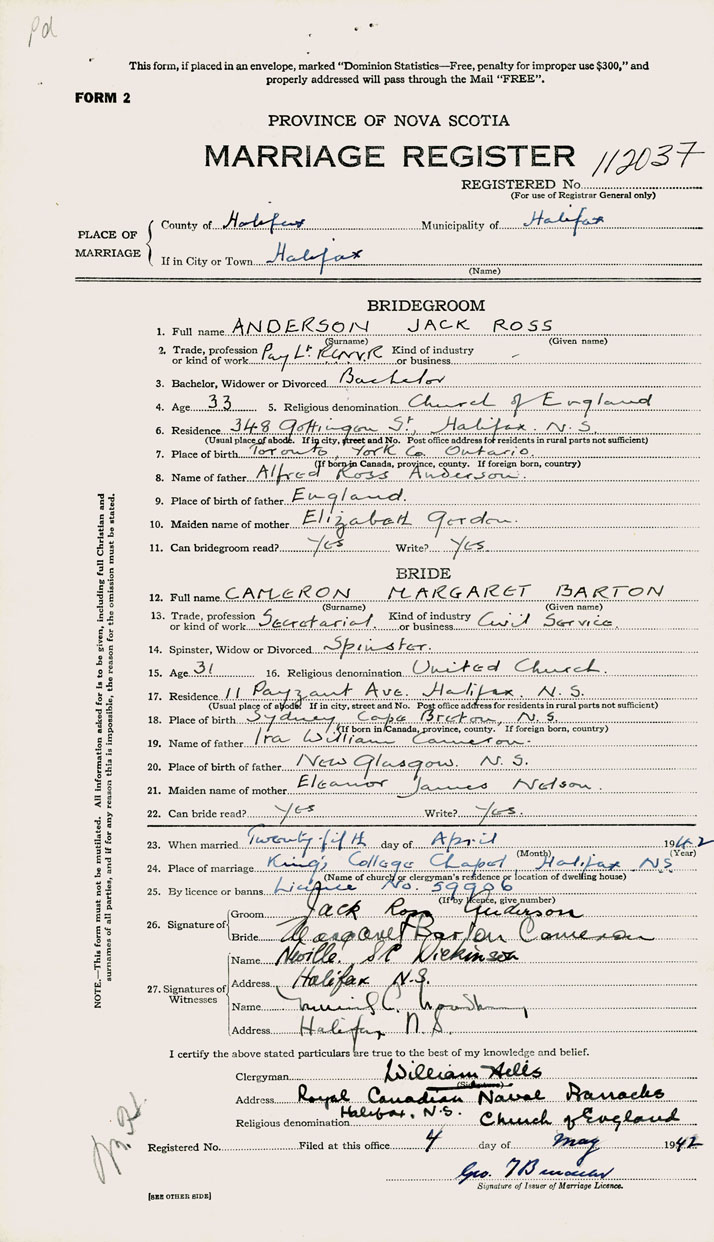 Pd
This form, if placed in an envelope, marked "Dominion Statistics—Free, penalty for improper use $300," and
properly addressed will pass through the Mail "FREE".
FORM 2
PROVINCE OF NOVA SCOTIA
MARRIAGE REGISTER 112037
REGISTERED No.
(For use of Registrar General only)
PLACE OF MARRIAGE
County of Halifax Municipality of Halifax
If in City or Town Halifax
(Name)
BRIDEGROOM
1. Full name ANDERSON JACK ROSS
(Surname) (Given name)
2. Trade, profession or kind of work Pay Lt. RCNVR Kind of industry or business -
3. Bachelor, Widower or Divorced Bachelor
4. Age 33 5. Religious denomination Church of England
6. Residence 348 Gottingen St, Halifax. N.S
(Usual place of abode. If in city, street and No. Post office address for residents in rural parts not sufficient)
7. Place of birth Toronto, York Co. Ontario.
(If born in Canada, province, county. If foreign born, country)
8. Name of father Alfred Ross Anderson.
9. Place of birth of father England.
10. Maiden name of mother Elizabeth Gordon.
11. Can bridegroom read? Yes Write? Yes.
BRIDE
12. Full name CAMERON MARGARET BARTON
(Surname) (Given name)
13. Trade, profession or kind of work Secretarial. Kind of industry or business Civil Service.
14. Spinster, Widow or Divorced Spinster.
15. Age 31 16. Religious denomination United Church.
17. Residence 11 Payzant Ave. Halifax. N.S.
(Usual place of abode. If in city, street and No. Post office address for residents in rural parts not sufficient)
18. Place of birth Sydney Cape Breton, N.S.
(If born in Canada, province, county. If foreign born, country)
19. Name of father Ira William Cameron.
20. Place of birth of father New Glasgow. N.S.
21. Maiden name of mother Eleanor James Nelson.
22. Can bride read? Yes Write? Yes.
23. When married Twenty-fifth day of April 1942
(Month) (Year)
24. Place of marriage King's College Chapel Halifax NS
(Name of church or clergyman's residence or location of dwelling house)
25. By licence or banns Licence No. 59996
(If by licence, give number)
26. Signature of
Groom Jack Ross Anderson
Bride Margaret Barton Cameron
27. Signatures of Witnesses
Name Neville. St Dickinson
Address Halifax N.S.
Name
Address Halifax N.S.
I certify the above stated particulars are true to the best of my knowledge and belief.
Clergyman William Hills
Address Royal Canadian Naval Barracks
Halifax, N.S.
Religious denomination Church of England
Registered No. Filed at this office 4 day of May 1942
Geo.
Signature of Issuer of Marriage Licence.
[SEE OTHER SIDE]
NOTE.—This form must not be mutilated. All information asked for is to be given, including full Christian and
surnames of all parties, and if for any reason this is impossible, the reason for the omission must be stated.